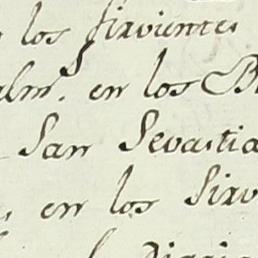 los sirvientes
alm.s en los B
San Sevastia
en los Sirv